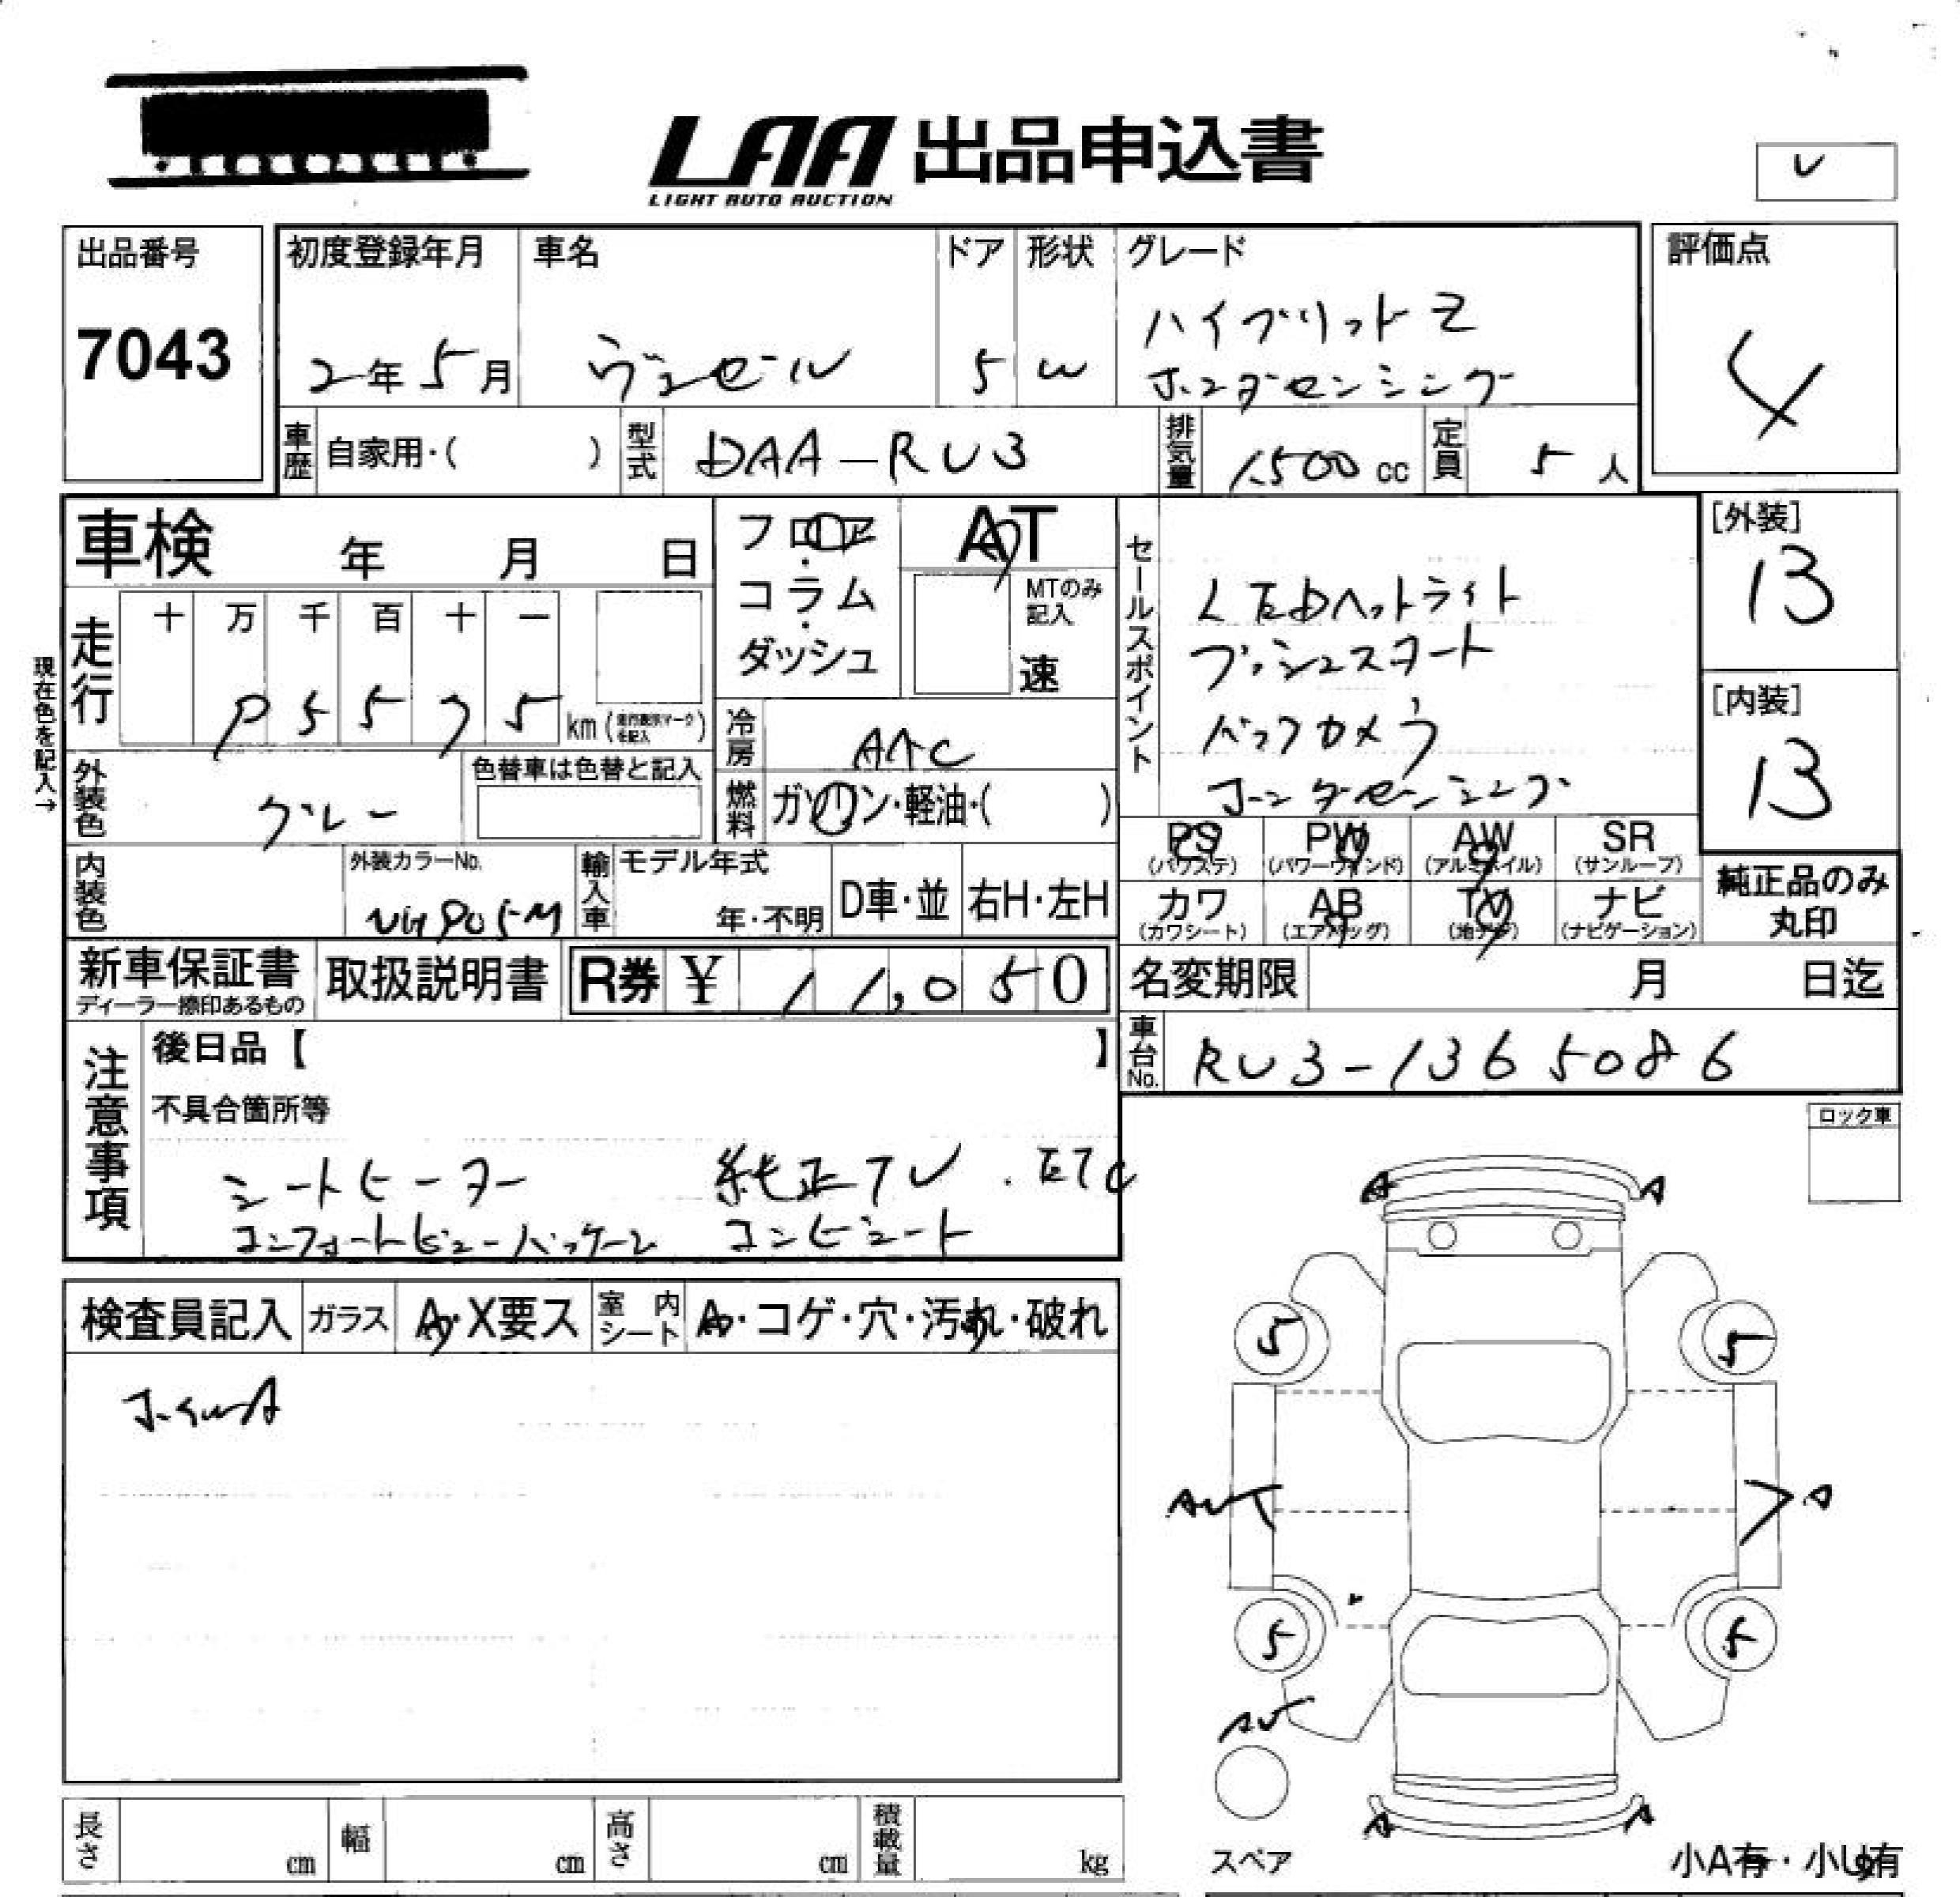 LAA 出品申込書
LIGHT AUTO AUCTION
レ
出品番号
7043
初度登録年月
2年5月
車名
ヴェゼール
ドア
5
形状
W
グレード
ハイブリットZ
ホンダセンシング
評価点
4
車歴
自家用・( )
型式
DAA-RU3
排気量
1,500cc
定員
5人
車検 年 月 日
フロア・コラム・ダッシュ
AT
MTのみ記入
速
セールスポイント
LEDヘットライト
プッシュスタート
バックカメラ
ホンダセンシング
[外装]
13
[内装]
13
現在色を記入→
走行
十 万 千 百 十 一
5 5 7 5
km (走行表示マークを記入)
冷房
AAC
外装色
グレー
色替車は色替と記入
燃料
ガソリン・軽油・( )
PS
(パワステ)
PW
(パワーウィンド)
AW
(アルミホイル)
SR
(サンルーフ)
内装色
外装カラーNo.
輸入車
モデル年式
年・不明
D車・並
右H・左H
カワ
(カワシート)
AB
(エアバッグ)
TV
(地デジ)
ナビ
(ナビゲーション)
純正品のみ
丸印
新車保証書
ディーラー捺印あるもの
取扱説明書
R券 ¥ 11,050
名変期限 月 日迄
車台No.
RU3-1365086
注意事項
後日品【 】
不具合箇所等
シートヒーター 純正TV . ETC
コンフォートビューパッケージ コンビシート
ロック車
検査員記入
ガラス
A・X要ス
室内シート
A・コゲ・穴・汚れ・破れ
ホイルA
A A
5 5
A
5 5
A A
スペア
小A有・小U有
長さ cm
幅 cm
高さ cm
積載量 kg